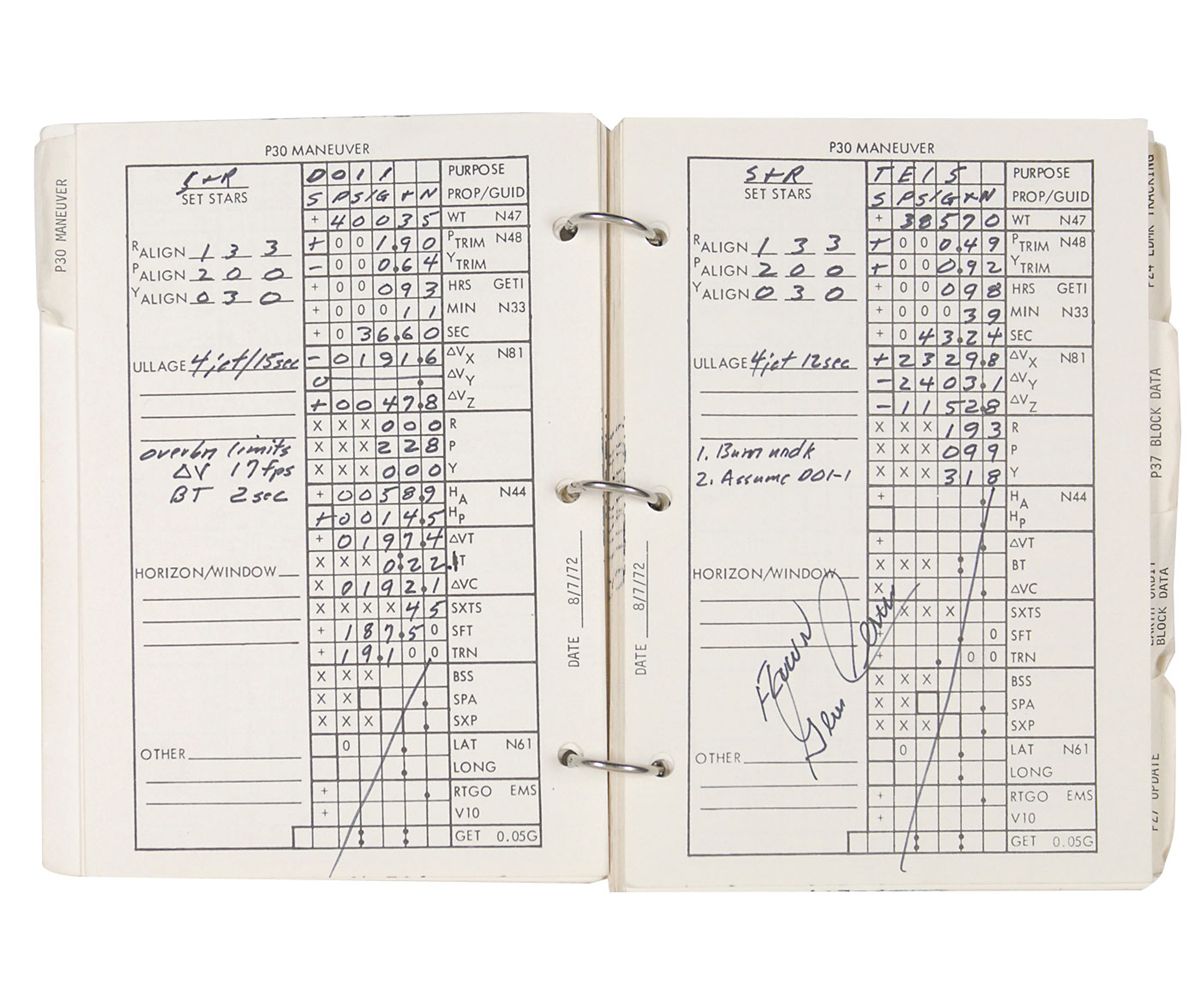 P30 MANEUVER
P30 MANEUVER
S+R
SET STARS
D O I 1 PURPOSE
S P S / G + N PROP/GUID
+ 40035 WT N47
RALIGN 1 3 3
+ 0 0 1.90 PTRIM N48
PALIGN 2 0 0
- 0 0 0.64 YTRIM
YALIGN 0 3 0
+ 0 0 093 HRS GETI
+ 0 0 0 11 MIN N33
+ 0 36.60 SEC
ULLAGE 4 jet/15sec
- 0191.6 ΔVX N81
0 . ΔVY
+ 0047.8 ΔVZ
X X X 000 R
overbn limits
X X X 228 P
ΔV 17 fps
X X X 000 Y
BT 2 sec
+ 0058.9 HA N44
+ 0014.5 HP
+ 0197.4 ΔVT
X X X 0:22.1 BT
HORIZON/WINDOW
X 0192.1 ΔVC
X X X X 45 SXTS
+ 187.5 0 SFT
+ 19.1 0 0 TRN
X X X BSS
X X SPA
X X X SXP
OTHER
0 LAT N61
LONG
+ RTGO EMS
+ V10
GET 0.05G
DATE 8/7/72
P30 MANEUVER
S+R
SET STARS
T E I 5 PURPOSE
S P S / G + N PROP/GUID
+ 38570 WT N47
RALIGN 1 3 3
+ 0 0 0.49 PTRIM N48
PALIGN 2 0 0
+ 0 0 0.92 YTRIM
YALIGN 0 3 0
+ 0 0 098 HRS GETI
+ 0 0 0 39 MIN N33
+ 0 43.24 SEC
ULLAGE 4 jet 12sec
+ 2329.8 ΔVX N81
- 2403.1 ΔVY
- 1152.8 ΔVZ
X X X 193 R
1. Burn undk
X X X 099 P
2. Assume DOI-1
X X X 318 Y
+ HA N44
HP
+ ΔVT
X X X BT
HORIZON/WINDOW
X ΔVC
X X X SXTS
0 SFT
+ 0 0 TRN
X X X BSS
X X SPA
X X X SXP
OTHER
0 LAT N61
LONG
+ RTGO EMS
+ V10
GET 0.05G
Gene Cernan
DATE 8/7/72
P37 BLOCK DATA
BLOCK DATA
P27 UPDATE